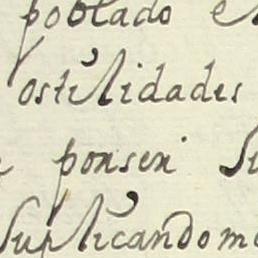 poblado e
ostilidades
ponsen Su
Suplicandome